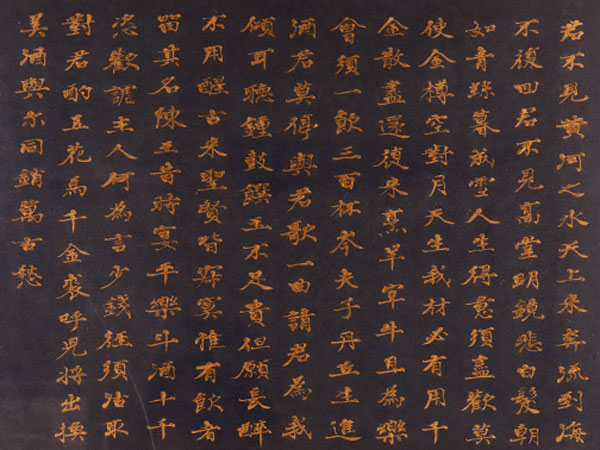 君不見黃河之水天上來奔流到海
不復回君不見高堂明鏡悲白髮朝
如青絲暮成雪人生得意須盡歡莫
使金樽空對月天生我材必有用千
金散盡還復來烹羊宰牛且為樂
會須一飲三百杯岑夫子丹丘生進
酒君莫停與君歌一曲請君為我
傾耳聽鐘鼓饌玉不足貴但願長醉
不用醒古來聖賢皆寂寞惟有飲者
留其名陳王昔時宴平樂斗酒十千
恣歡謔主人何為言少錢徑須沽取
對君酌五花馬千金裘呼兒將出換
美酒與尔同銷萬古愁